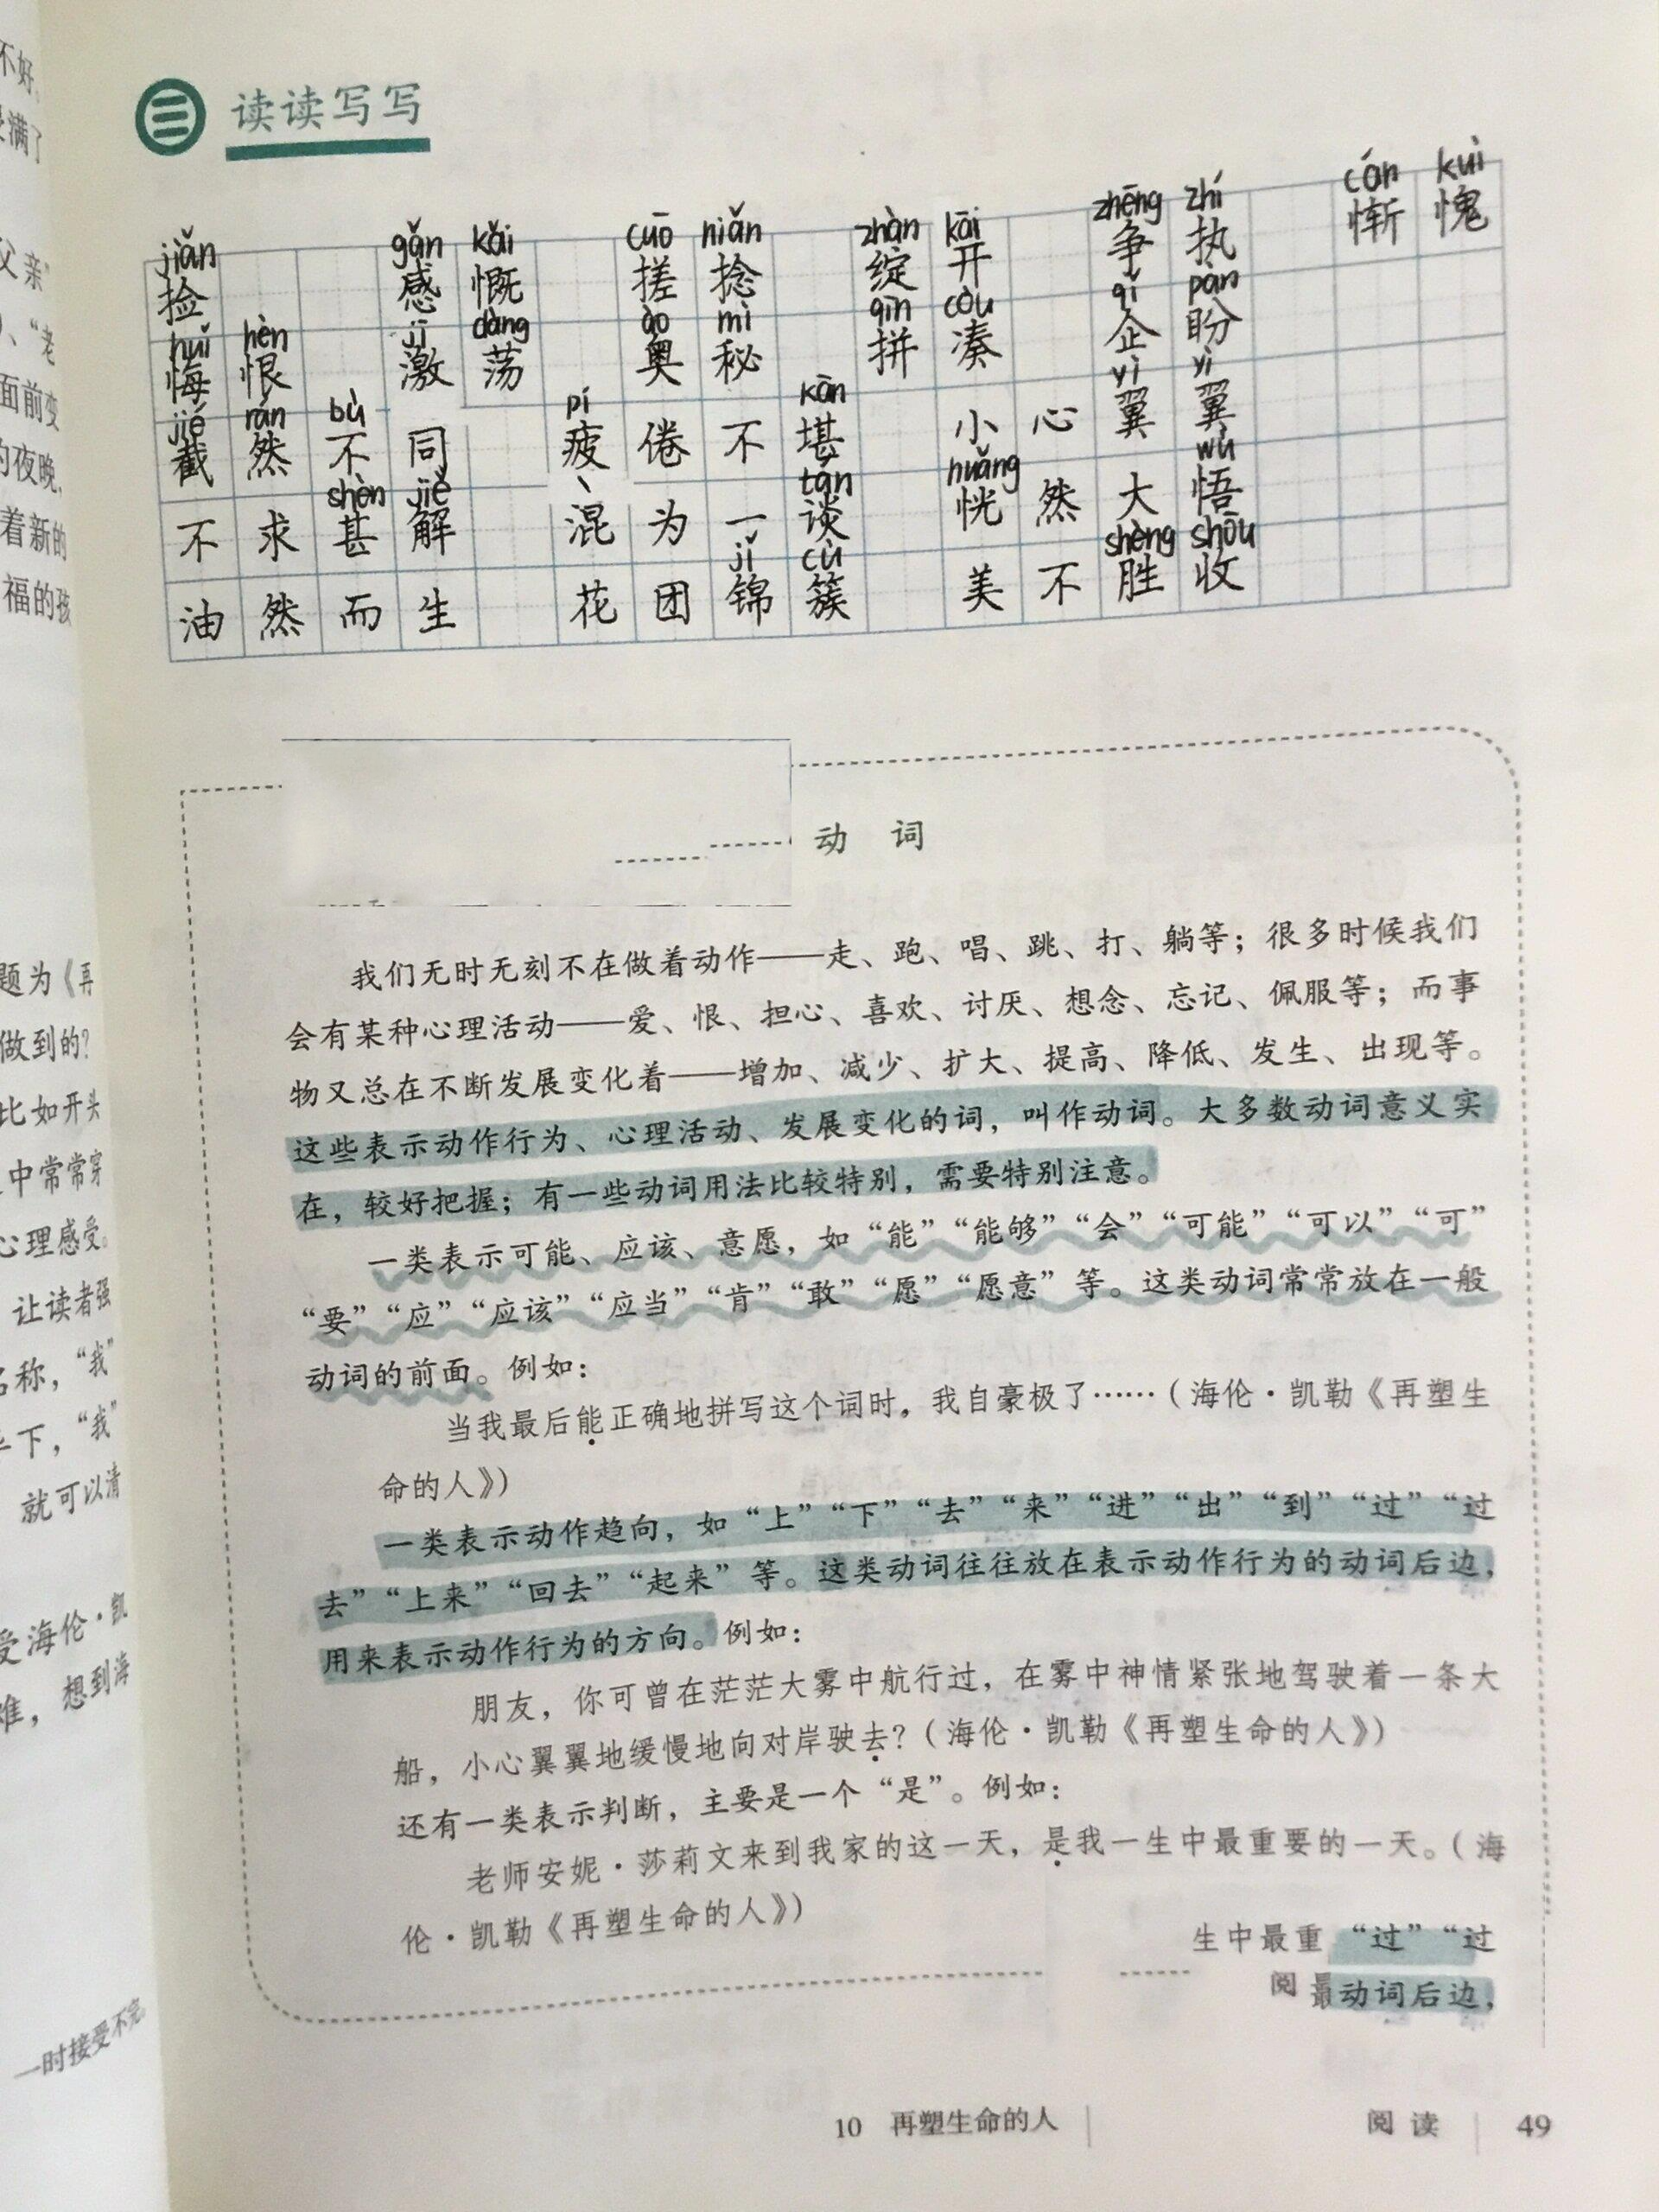 不好
满了
父亲”
、“老
面前变
的夜晚，
着新的
福的孩
题为《再
做到的？
比如开头
中常常穿
心理感受。
让读者强
名称，“我”
下，“我”
就可以清
受海伦·凯
难，想到海
一时接受不完
三 读读写写
jiǎn gǎn kǎi cuō niǎn zhàn kāi zhēng zhí cán kuì
捡 感慨 搓捻 绽开 争执 惭愧
huǐ hèn jī dàng ào mì pīn còu qǐ pàn
悔恨 激荡 奥秘 拼凑 企盼
jié rán bù pí kān yì yì
截然不同 疲倦不堪 小心翼翼
shèn jiě tán huǎng wù
不求甚解 混为一谈 恍然大悟
jǐ cù shèng shōu
油然而生 花团锦簇 美不胜收
动 词
我们无时无刻不在做着动作——走、跑、唱、跳、打、躺等；很多时候我们
会有某种心理活动——爱、恨、担心、喜欢、讨厌、想念、忘记、佩服等；而事
物又总在不断发展变化着——增加、减少、扩大、提高、降低、发生、出现等。
这些表示动作行为、心理活动、发展变化的词，叫作动词。大多数动词意义实
在，较好把握；有一些动词用法比较特别，需要特别注意。
一类表示可能、应该、意愿，如“能”“能够”“会”“可能”“可以”“可”
“要”“应”“应该”“应当”“肯”“敢”“愿”“愿意”等。这类动词常常放在一般
动词的前面。例如：
当我最后能正确地拼写这个词时，我自豪极了……（海伦·凯勒《再塑生
命的人》）
一类表示动作趋向，如“上”“下”“去”“来”“进”“出”“到”“过”“过
去”“上来”“回去”“起来”等。这类动词往往放在表示动作行为的动词后边，
用来表示动作行为的方向。例如：
朋友，你可曾在茫茫大雾中航行过，在雾中神情紧张地驾驶着一条大
船，小心翼翼地缓慢地向对岸驶去？（海伦·凯勒《再塑生命的人》）
还有一类表示判断，主要是一个“是”。例如：
老师安妮·莎莉文来到我家的这一天，是我一生中最重要的一天。（海
伦·凯勒《再塑生命的人》）
生中最重 “过”“过
阅 最动词后边，
10 再塑生命的人
阅读 49